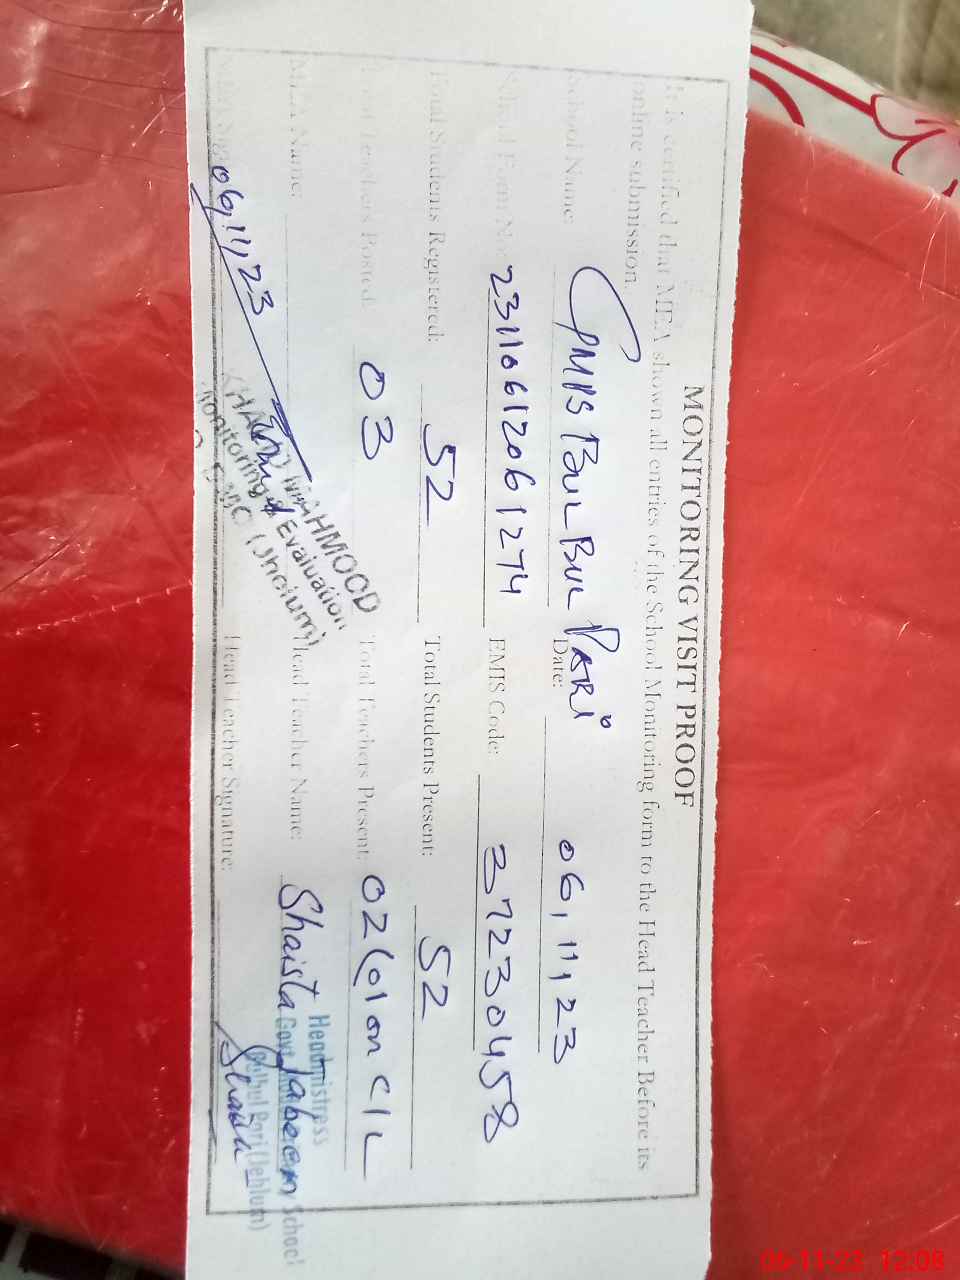 MONITORING VISIT PROOF
It is certified that MEA shown all entries of the School Monitoring form to the Head Teacher Before its
online submission.
School Name: GMPS BUL BUL PARI Date: 06,11,23
School Form No: 2311061206 1274 EMIS Code: 37230458
Total Students Registered: 52 Total Students Present: 52
Total Teachers Posted: 03 Total Teachers Present: 02 (01 on C/L
MEA Name: Head Teacher Name: Shaista Jabeen
06,11,23 Head Teacher Signature:
MAHMOOD
Monitoring & Evaluation
(Jhelum)
Headmistress
Govt. School
Bulbul Pari (Jehlum)
06-11-23 12:08